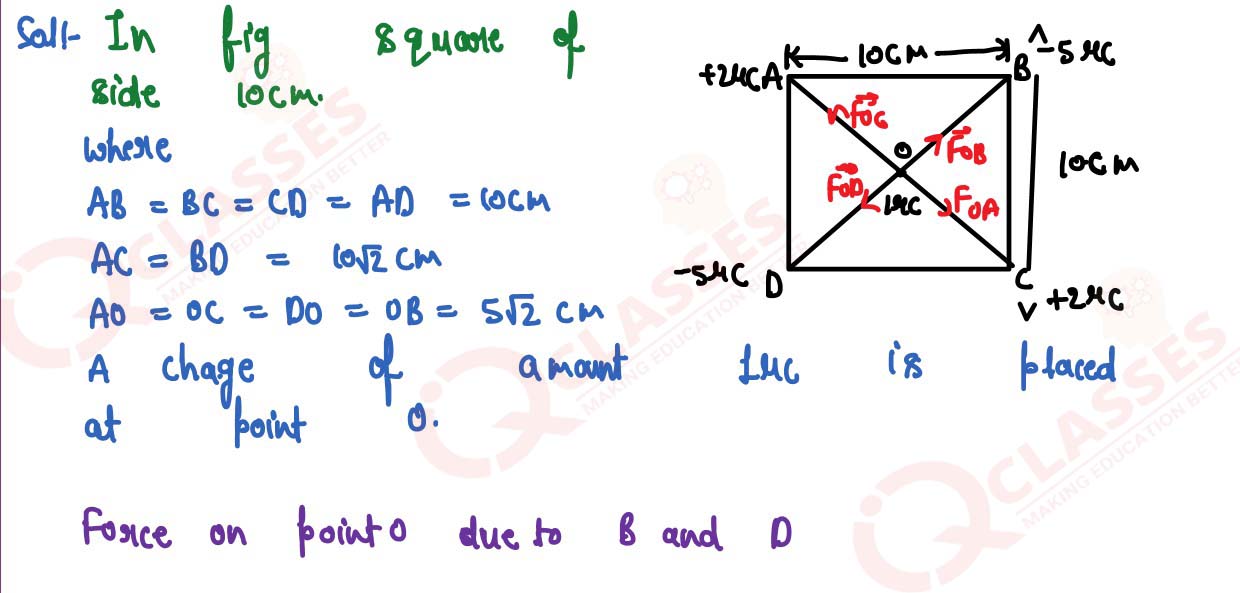 Sol:- In fig square of
side 10cm.
where
AB = BC = CD = AD = 10cm
AC = BD = 10√2 cm
AO = OC = DO = OB = 5√2 cm
A chage of amount 1μc is placed
at point O.
Force on point O due to B and D
10cm
+2μC A
B -5μC
F⃗OC
O
F⃗OB
10cm
F⃗OD
1μC
FOA
-5μC D
C +2μC
IQ CLASSES
MAKING EDUCATION BETTER
IQ CLASSES
MAKING EDUCATION BETTER
IQ CLASSES
MAKING EDUCATION BETTER